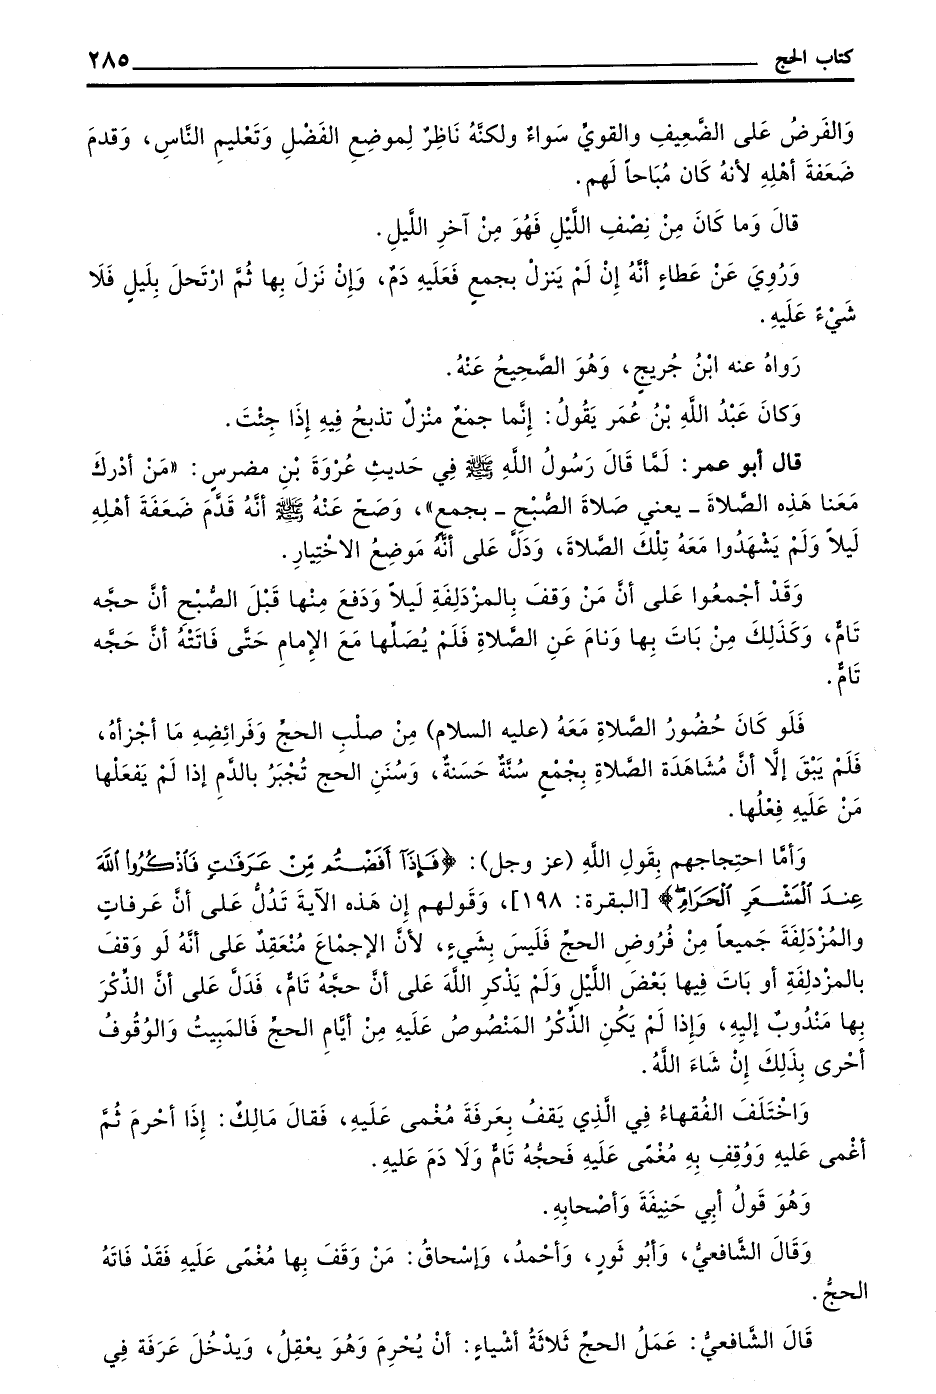 كتاب الحج ٢٨٥
وَالفَرضُ عَلى الضَّعِيفِ والقويِّ سَواءٌ ولكنَّهُ نَاظِرٌ لِموضِعِ الفَضْلِ وَتَعْلِيمِ النَّاسِ، وَقدمَ
ضَعَفةَ أهْلِهِ لأنهُ كَان مُبَاحاً لَهم.
قالَ وَما كَانَ مِنْ نِصْفِ اللَّيْلِ فَهُوَ مِنْ آخرِ الليلِ.
وَرُوِيَ عَنْ عَطاءٍ أنَّهُ إِن لَمْ يَنزلْ بجمعٍ فَعَليهِ دَمٌ، وَإِنْ نَزلَ بِها ثُمَّ ارْتَحلَ بِلَيلٍ فَلَا
شَيْءَ عَلَيهِ.
رَواهُ عنه ابْنُ جُريجٍ، وَهُوَ الصَّحِيحُ عَنْهُ.
وَكانَ عَبْدُ اللَّهِ بْنُ عُمَر يَقُولُ: إِنَّما جمعٌ منْزلٌ تذبحُ فِيهِ إِذَا جِئْتَ.
قال أبو عمر: لَمَّا قَالَ رَسُولُ اللَّهِ ﷺ فِي حَديثِ عُرْوَةَ بْنِ مضرسٍ: «مَنْ أدْركَ
مَعَنا هَذِه الصَّلاةَ - يعني صَلاةَ الصُّبْحِ - بجمعٍ»، وَصَحّ عَنْهُ ﷺ أنَّهُ قَدَّمَ ضَعَفَةَ أهْلِهِ
لَيلاً وَلَمْ يَشْهَدُوا مَعَهُ تِلْكَ الصَّلاةَ، وَدَلَّ عَلى أنَّهُ مَوضِعُ الاخْتِيارِ.
وَقَدْ أجْمعُوا عَلى أنَّ مَنْ وَقفَ بِالمزْدَلِفَةِ لَيلاً وَدَفعَ مِنْها قَبْلَ الصُّبْحِ أنَّ حجَّه
تَامٌّ، وَكَذَلِكَ مِنْ بَاتَ بِها وَنامَ عَنِ الصَّلاةِ فَلَمْ يُصَلِّها مَعَ الإِمامِ حَتَّى فَاتَتْهُ أنَّ حَجَّه
تَامٌّ.
فَلَو كَانَ حُضُورُ الصَّلاةِ مَعَهُ (عليه السلام) مِنْ صلْبِ الحجِّ وَفَرائِضِهِ مَا أجْزأهُ،
فَلَمْ يَبْقَ إلَّا أنَّ مُشَاهَدَة الصَّلاةِ بِجْمْعٍ سُنَّةٌ حَسَنةٌ، وَسُنَن الحج تُجْبَرُ بالدَّمِ إذا لَمْ يَفعَلْها
مَنْ عَلَيهِ فِعْلُها.
وَأمَّا احتِجاجهم بِقَولِ اللَّهِ (عز وجل): ﴿فَإِذَآ أَفَضْتُم مِّنْ عَرَفَاتٍ فَٱذْكُرُوا۟ ٱللَّهَ
عِندَ ٱلْمَشْعَرِ ٱلْحَرَامِ﴾ [البقرة: ١٩٨]، وَقَولهم إن هَذه الآيةَ تَدُلُّ عَلى أنَّ عَرفاتٍ
والمُزْدَلِفَةَ جَميعاً مِنْ فُروُضِ الحجِّ فَلَيسَ بِشَيءٍ، لأنَّ الإجْماعَ مُنْعَقِدٌ عَلى أنَّهُ لَو وَقفَ
بالمزْدلِفِةِ أو بَاتَ فِيها بَعْضَ اللَّيْلِ وَلَمْ يَذْكرِ اللَّهَ عَلى أنَّ حجَّهُ تَامٌّ، فَدَلَّ عَلى أنَّ الذِّكْرَ
بِها مَنْدُوبٌ إليهِ، وَإذا لَمْ يَكُنِ الذِّكْرُ المَنْصُوصُ عَلَيهِ مِنْ أيَّامِ الحجِّ فَالمَبِيتُ وَالوُقُوفُ
أحْرى بِذَلِكَ إنْ شَاءَ اللَّهُ.
وَاخْتَلَفَ الفُقهاءُ فِي الَّذِي يَقفُ بِعَرفَةَ مُغْمى عَلَيهِ، فَقالَ مَالِكٌ: إِذَا أحْرمَ ثُمَّ
أغْمى عَليهِ وَوُقِفِ بِهِ مُغْمًى عَلَيهِ فَحجُّهُ تَامٌّ وَلَا دَمَ عَليهِ.
وَهُوَ قَولُ أبي حَنِيفَةَ وَأصْحابِهِ.
وَقَالَ الشَّافعيُّ، وَأبُو ثَورٍ، وَأحْمدُ، وَإِسْحاقُ: مَنْ وَقَفَ بِها مُغْمًى عَلَيهِ فَقَدْ فَاتَهُ
الحجُّ.
قَالَ الشَّافعيُّ: عَمَلُ الحجِّ ثَلاثَةُ أشْياءٍ: أنْ يُحْرِمَ وَهُوَ يعْقِلُ، وَيدْخُلَ عَرَفَة فِي